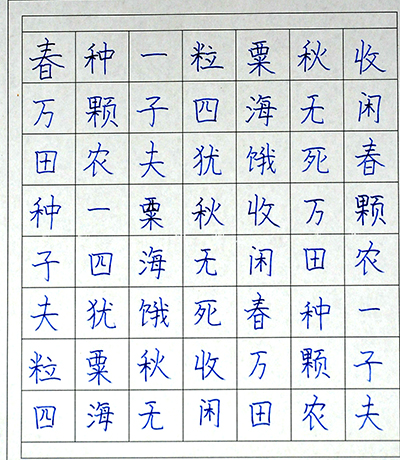 春种一粒粟秋收
万颗子四海无闲
田农夫犹饿死春
种一粟秋收万颗
子四海无闲田农
夫犹饿死春种一
粒粟秋收万颗子
四海无闲田农夫